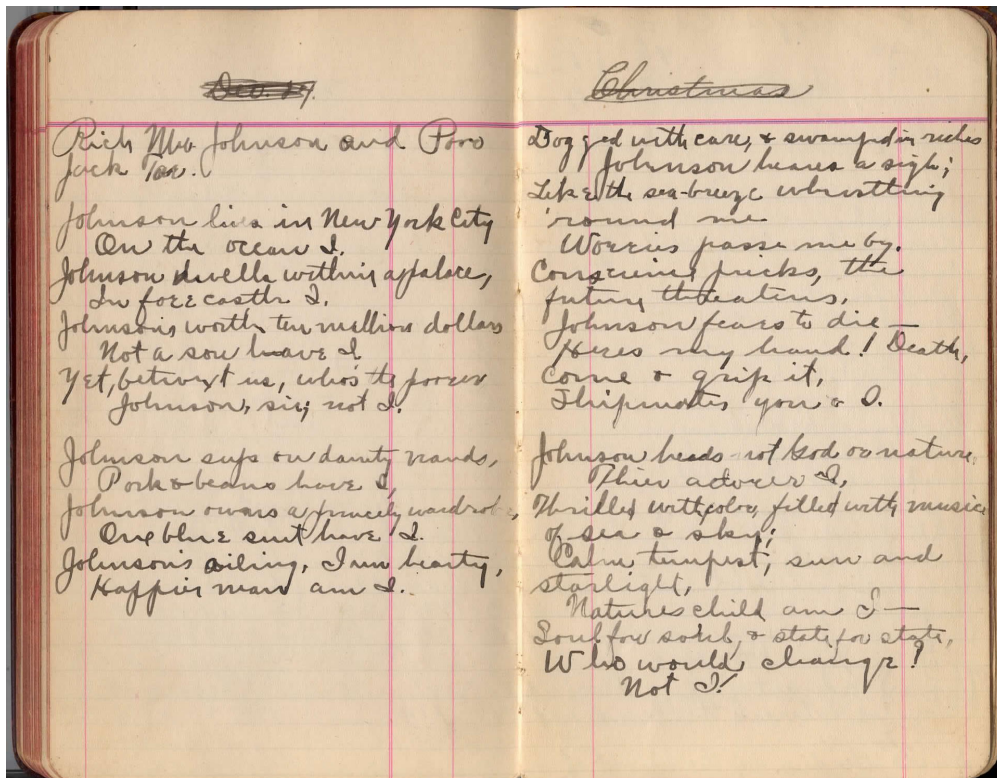 Dec. 17.
Rich Mr. Johnson and Poor
Jack Tar.
Johnson lives in New York City
On the ocean I.
Johnson dwells within a palace,
In forecastle I.
Johnson's worth ten million dollars
Not a sou have I,
Yet, betwixt us, who's the poorer
Johnson, sir, not I.
Johnson sups on dainty viands,
Pork & beans have I,
Johnson owns a princely wardrobe,
One blue suit have I.
Johnson's ailing, I'm hearty,
Happier man am I.
Christmas
Dogged with care, & swamped in riches
Johnson heaves a sigh;
Like the sea-breeze whistling
'round me
Worries passe me by.
Conscience pricks, the
future threatens,
Johnson fears to die —
Heres my hand! Death,
come & grip it,
Shipmates you & I.
Johnson heads not God or nature,
Thier adorer I,
Thrilled with color, filled with music
of sea & sky;
Calm tempest, sun and
starlight,
Natures child am I —
Soul for soul, & state for state,
Who would change!
Not I!